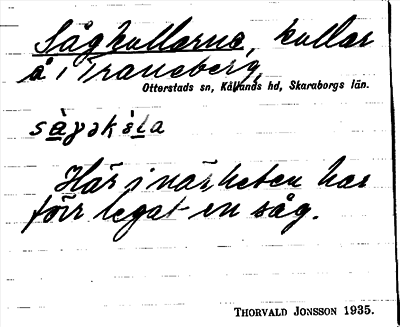 Såghullarna, kullar
å i Traneberg,
Otterstads sn, Kållands hd, Skaraborgs län.
Här i närheten har
förr legat en såg.
THORVALD JONSSON 1935.